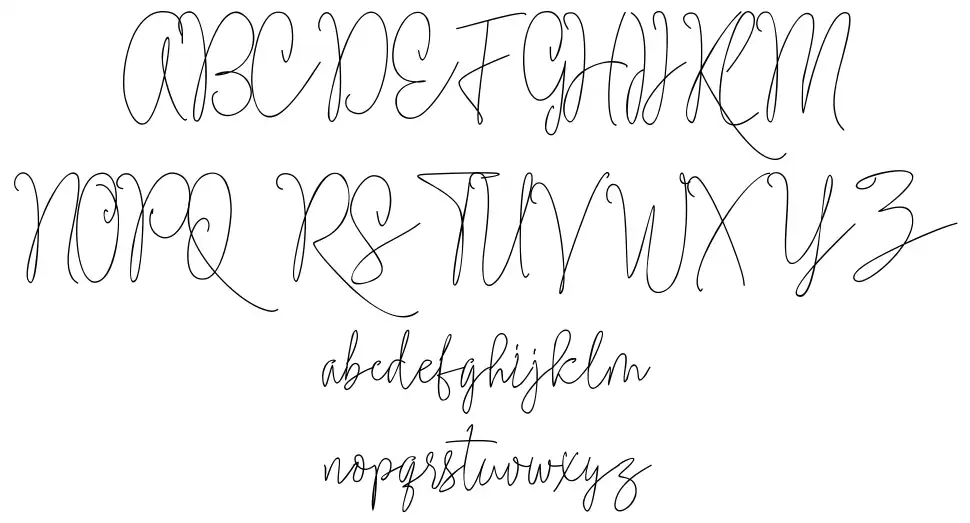 ABCDEFGHIJKLM
NOPQ RSTUVWXYZ
abcdefghijklm
nopqrstuvwxyz